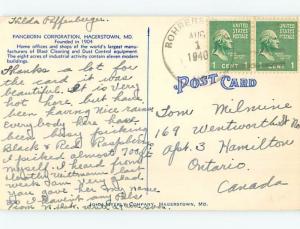 Hilda Offenburger.
PANGBORN CORPORATION, HAGERSTOWN, MD.
Founded in 1904
Home offices and shops of the world's largest manufacturers
of Blast Cleaning and Dust Control equipment.
The eight acres of industrial activity contain eleven modern
buildings.
ROHRERS
AUG
1
1940
UNITED STATES POSTAGE
1 CENT 1
1 CENT 1
POST CARD
Thanks a lot for
the card it was
beautiful. It is very
hot here, but have
been having nice rains
everywhere here had
been busy picking
Black & Red Raspberry
I picked almost 700
myself. I heard from
week I am very glad
you gave her my name
Tom Milmine
169 Wentworth St
Apt. 3 Hamilton
Ontario.
Canada
MYERS COMPANY, HAGERSTOWN, MD.